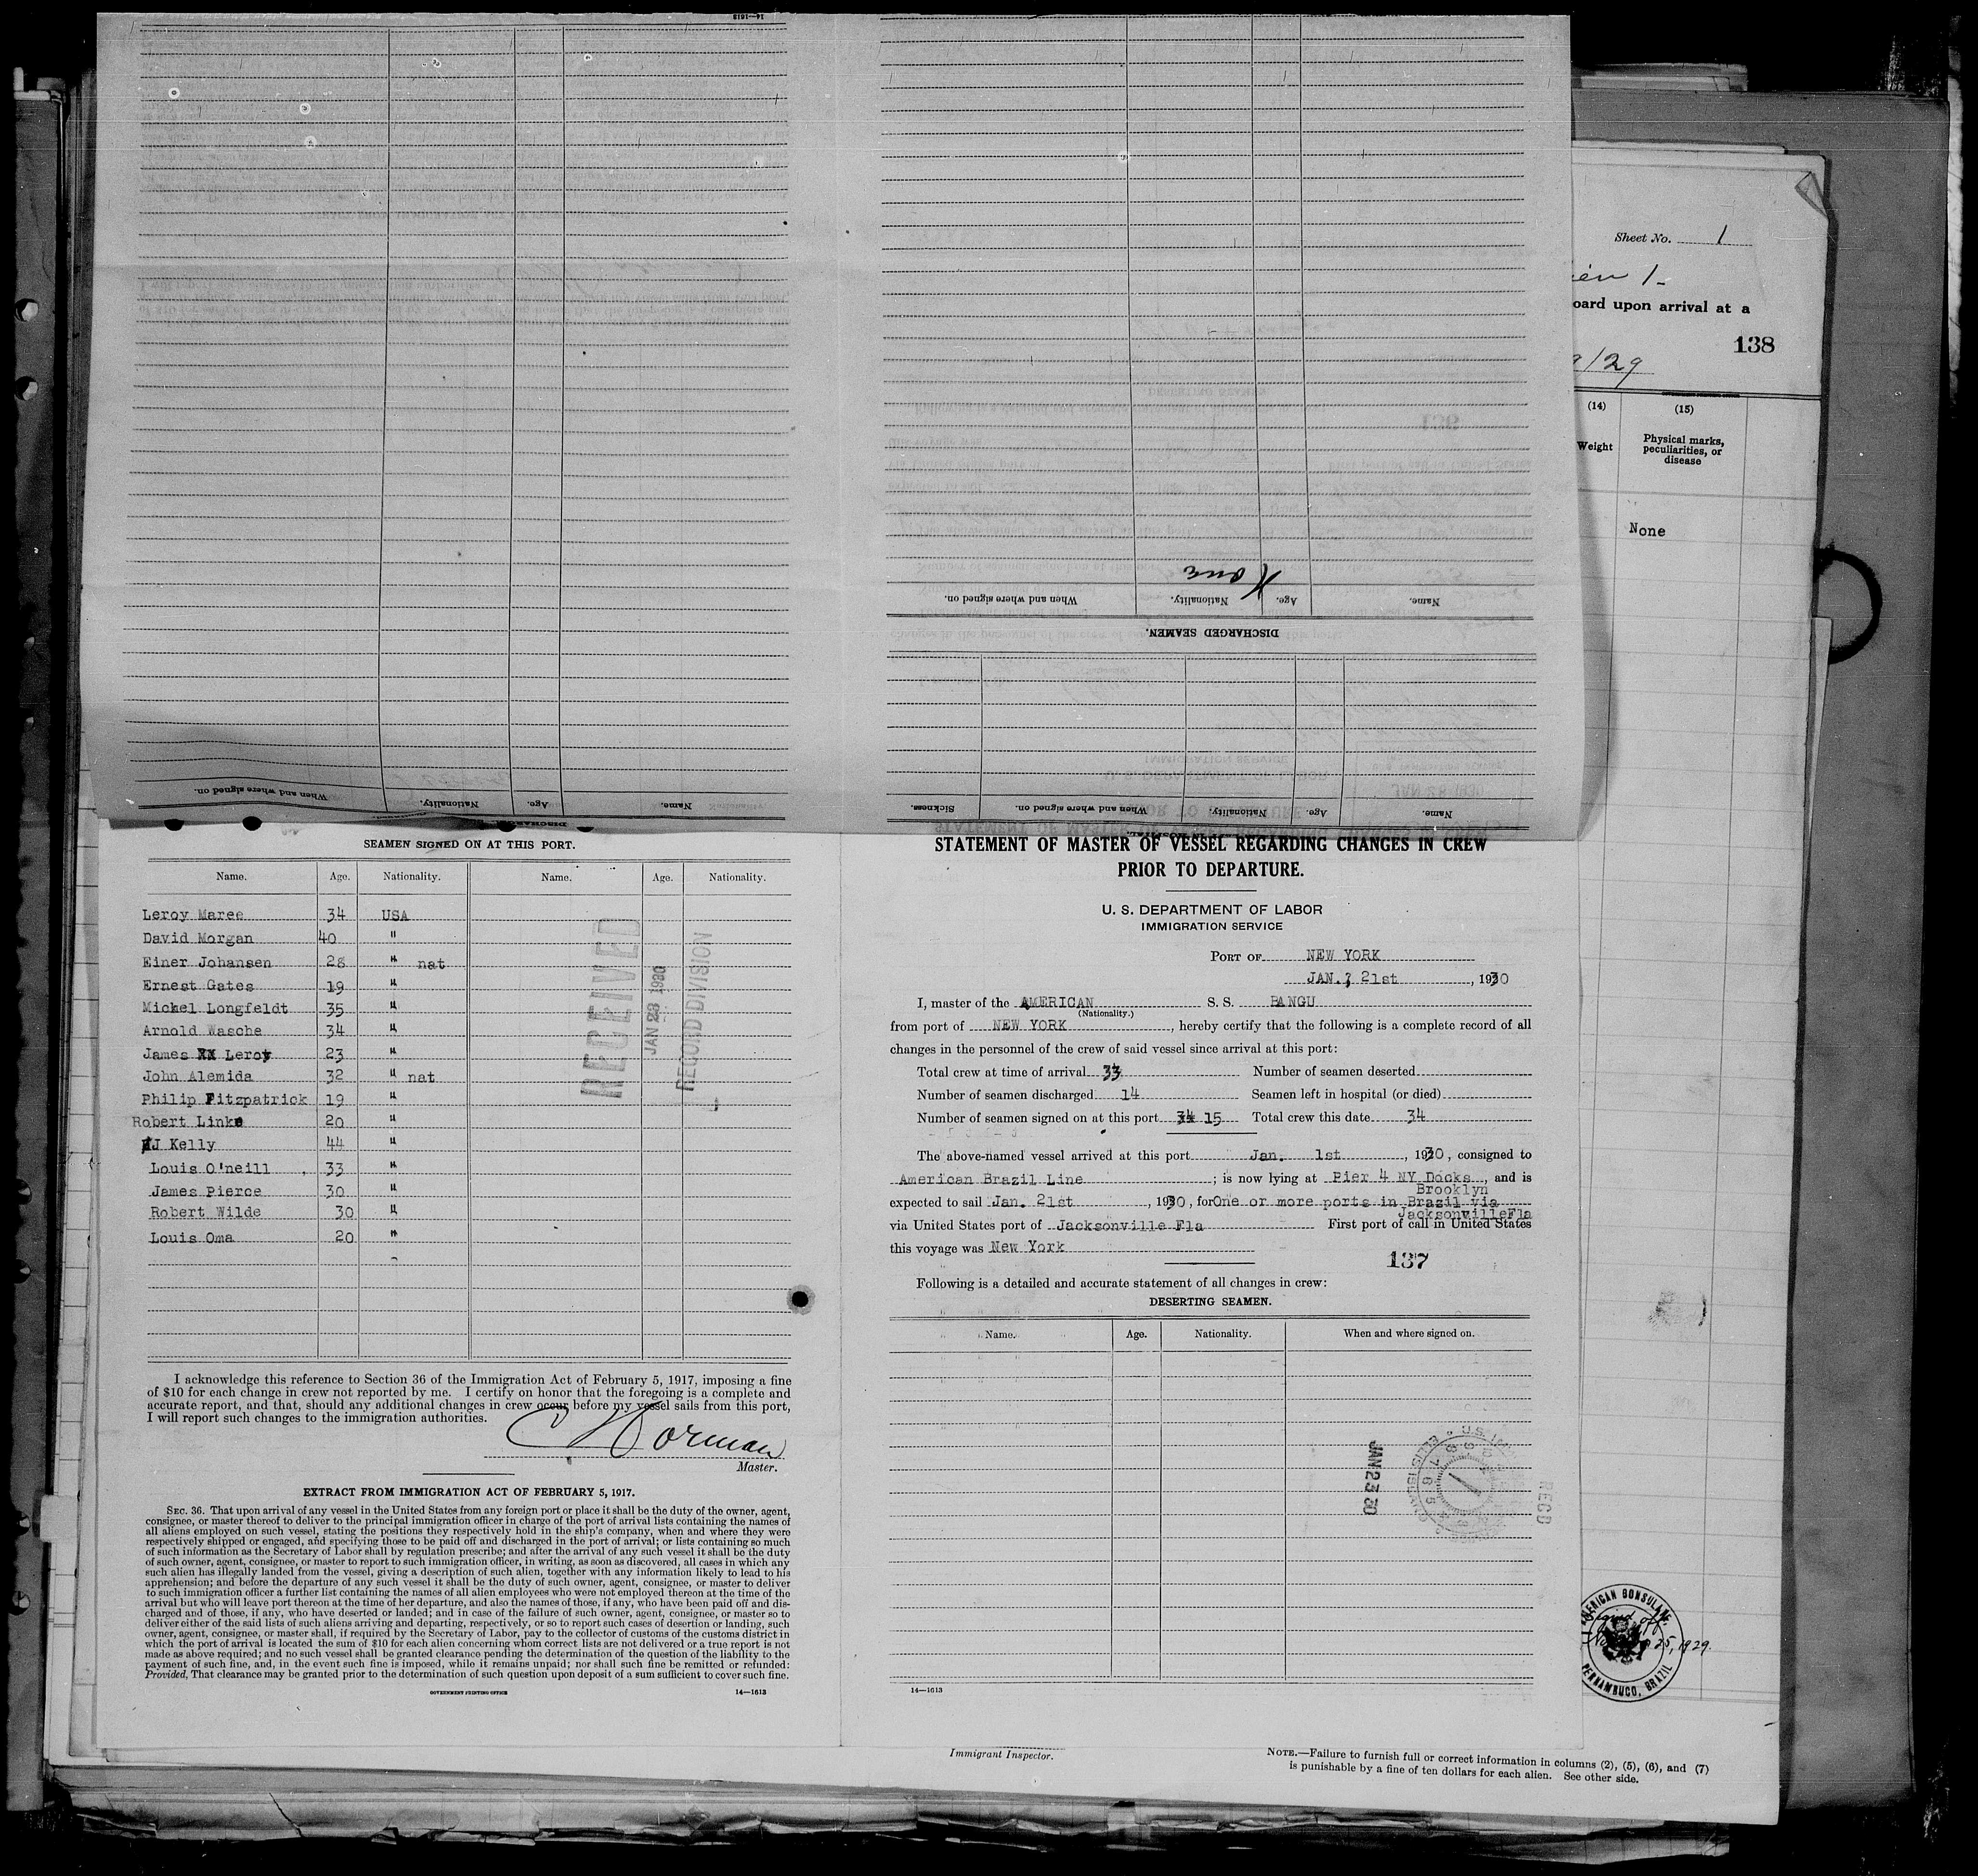 14—1613
Name. Age. Nationality. When and where signed on.
None
DISCHARGED SEAMEN.
Name. Age. Nationality. When and where signed on. Sickness.
Name. Age. Nationality. When and where signed on.
Sheet No. 1
oard upon arrival at a
138
/29
(14) (15)
Weight Physical marks, peculiarities, or disease
None
SEAMEN SIGNED ON AT THIS PORT.
Name. Age. Nationality. Name. Age. Nationality.
Leroy Maree 34 USA
David Morgan 40 "
Einer Johansen 28 " nat
Ernest Gates 19 "
Mickel Longfeldt 35 "
Arnold Wasche 34 "
James XX Leroy 23 "
John Alemida 32 " nat
Philip Fitzpatrick 19 "
Robert Linke 20 "
J Kelly 44 "
Louis O'neill 33 "
James Pierce 30 "
Robert Wilde 30 "
Louis Oma 20 "
RECEIVED
JAN 28 1930
RECORD DIVISION
I acknowledge this reference to Section 36 of the Immigration Act of February 5, 1917, imposing a fine
of $10 for each change in crew not reported by me. I certify on honor that the foregoing is a complete and
accurate report, and that, should any additional changes in crew occur before my vessel sails from this port,
I will report such changes to the immigration authorities.
C Norman
Master.
EXTRACT FROM IMMIGRATION ACT OF FEBRUARY 5, 1917.
SEC. 36. That upon arrival of any vessel in the United States from any foreign port or place it shall be the duty of the owner, agent,
consignee, or master thereof to deliver to the principal immigration officer in charge of the port of arrival lists containing the names of
all aliens employed on such vessel, stating the positions they respectively hold in the ship's company, when and where they were
respectively shipped or engaged, and specifying those to be paid off and discharged in the port of arrival; or lists containing so much
of such information as the Secretary of Labor shall by regulation prescribe; and after the arrival of any such vessel it shall be the duty
of such owner, agent, consignee, or master to report to such immigration officer, in writing, as soon as discovered, all cases in which any
such alien has illegally landed from the vessel, giving a description of such alien, together with any information likely to lead to his
apprehension; and before the departure of any such vessel it shall be the duty of such owner, agent, consignee, or master to deliver
to such immigration officer a further list containing the names of all alien employees who were not employed thereon at the time of the
arrival but who will leave port thereon at the time of her departure, and also the names of those, if any, who have been paid off and dis-
charged and of those, if any, who have deserted or landed; and in case of the failure of such owner, agent, consignee, or master so to
deliver either of the said lists of such aliens arriving and departing, respectively, or so to report such cases of desertion or landing, such
owner, agent, consignee, or master shall, if required by the Secretary of Labor, pay to the collector of customs of the customs district in
which the port of arrival is located the sum of $10 for each alien concerning whom correct lists are not delivered or a true report is not
made as above required; and no such vessel shall be granted clearance pending the determination of the question of the liability to the
payment of such fine, and, in the event such fine is imposed, while it remains unpaid; nor shall such fine be remitted or refunded:
Provided, That clearance may be granted prior to the determination of such question upon deposit of a sum sufficient to cover such fine.
GOVERNMENT PRINTING OFFICE 14—1613
STATEMENT OF MASTER OF VESSEL REGARDING CHANGES IN CREW
PRIOR TO DEPARTURE.
U. S. DEPARTMENT OF LABOR
IMMIGRATION SERVICE
PORT OF NEW YORK
JAN. 21st, 1930
I, master of the AMERICAN S. S. BANGU
(Nationality.)
from port of NEW YORK, hereby certify that the following is a complete record of all
changes in the personnel of the crew of said vessel since arrival at this port:
Total crew at time of arrival 33 Number of seamen deserted
Number of seamen discharged 14 Seamen left in hospital (or died)
Number of seamen signed on at this port 34 15 Total crew this date 34
The above-named vessel arrived at this port Jan. 1st, 1930, consigned to
American Brazil Line; is now lying at Pier 4 NY Docks, and is
Brooklyn
expected to sail Jan. 21st, 1930, for One or more ports in Brazil via
JacksonvilleFla
via United States port of Jacksonville Fla First port of call in United States
this voyage was New York
137
Following is a detailed and accurate statement of all changes in crew:
DESERTING SEAMEN.
Name. Age. Nationality. When and where signed on.
JAN 23 30
REC'D
14—1613
AMERICAN CONSULATE
PERNAMBUCO, BRAZIL
25, 1929.
Immigrant Inspector.
NOTE.—Failure to furnish full or correct information in columns (2), (5), (6), and (7)
is punishable by a fine of ten dollars for each alien. See other side.